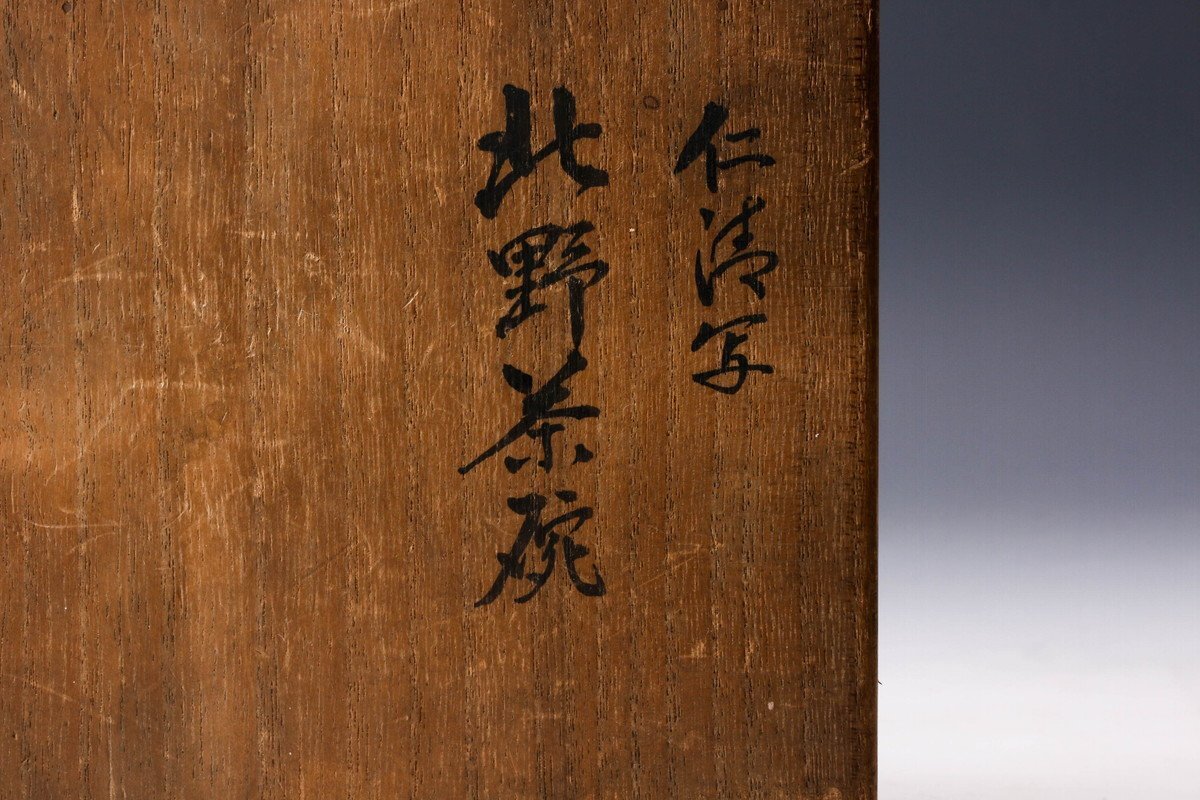 仁清写
北野茶碗